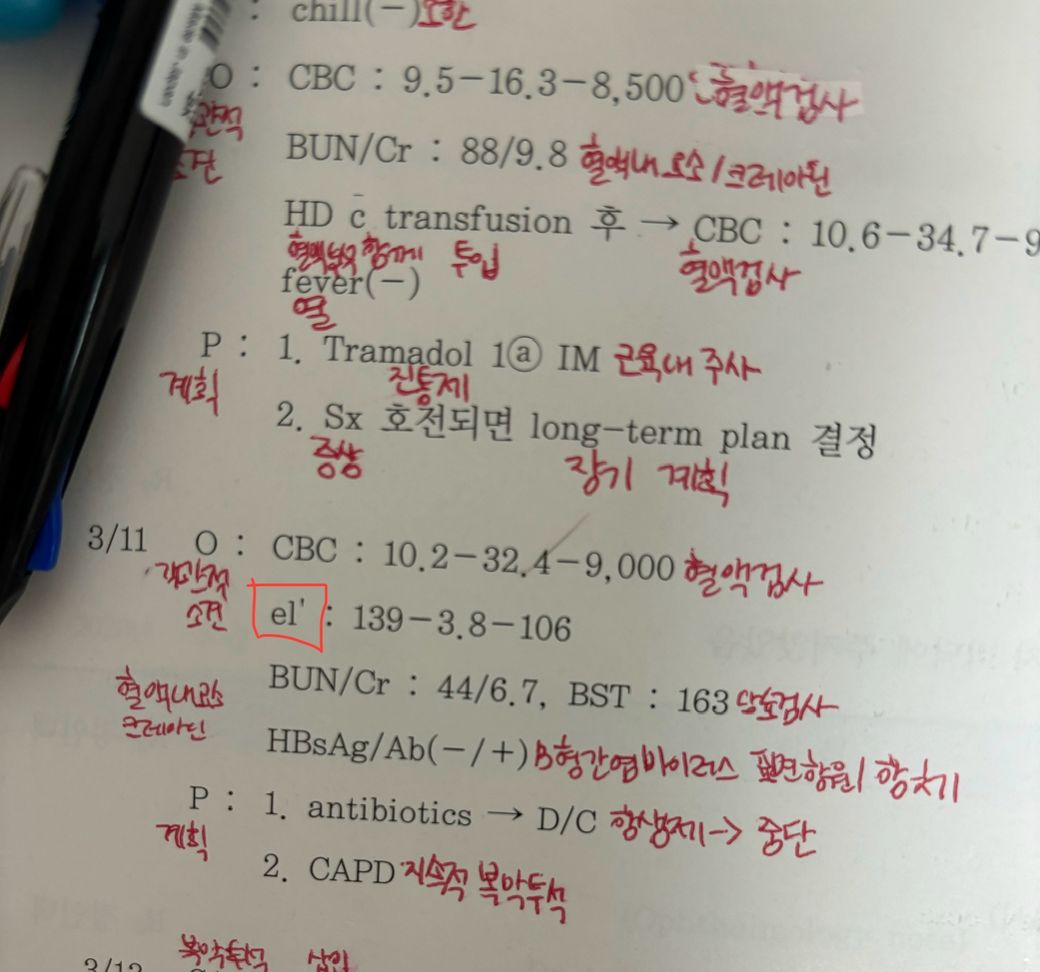 : chill(-)오한
O : CBC : 9.5-16.3-8,500 혈액검사
BUN/Cr : 88/9.8 혈액내 요소/크레아틴
소견
HD c̄ transfusion 후 → CBC : 10.6-34.7-9
함께 투입 혈액검사
fever(-)
열
P : 1. Tramadol 1ⓐ IM 근육내 주사
계획 진통제
2. Sx 호전되면 long-term plan 결정
증상 장기 계획
3/11 O : CBC : 10.2-32.4-9,000 혈액검사
객관적
소견 el' : 139-3.8-106
혈액내요소 BUN/Cr : 44/6.7, BST : 163 당뇨검사
크레아틴
HBsAg/Ab(-/+) B형간염바이러스 표면항원/항체
P : 1. antibiotics → D/C 항생제-> 중단
계획
2. CAPD 지속적 복막투석
복막투석 삽입
3/12